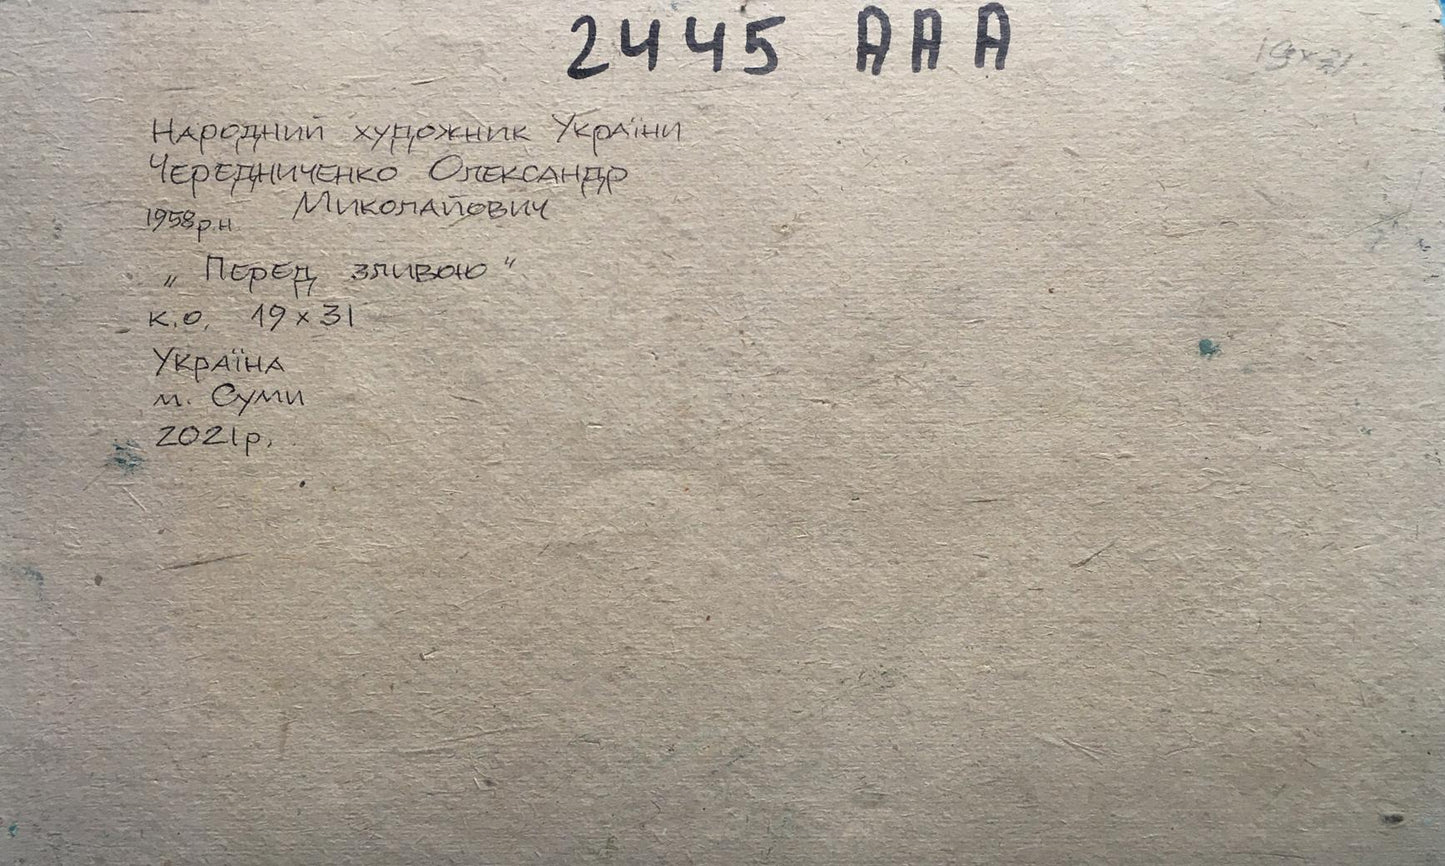 2445 AAA
19x31
Народний художник України
Чередниченко Олександр
Миколайович
1958р.н.
„Перед зливою"
к.о. 19x31
Україна
м. Суми
2021р.